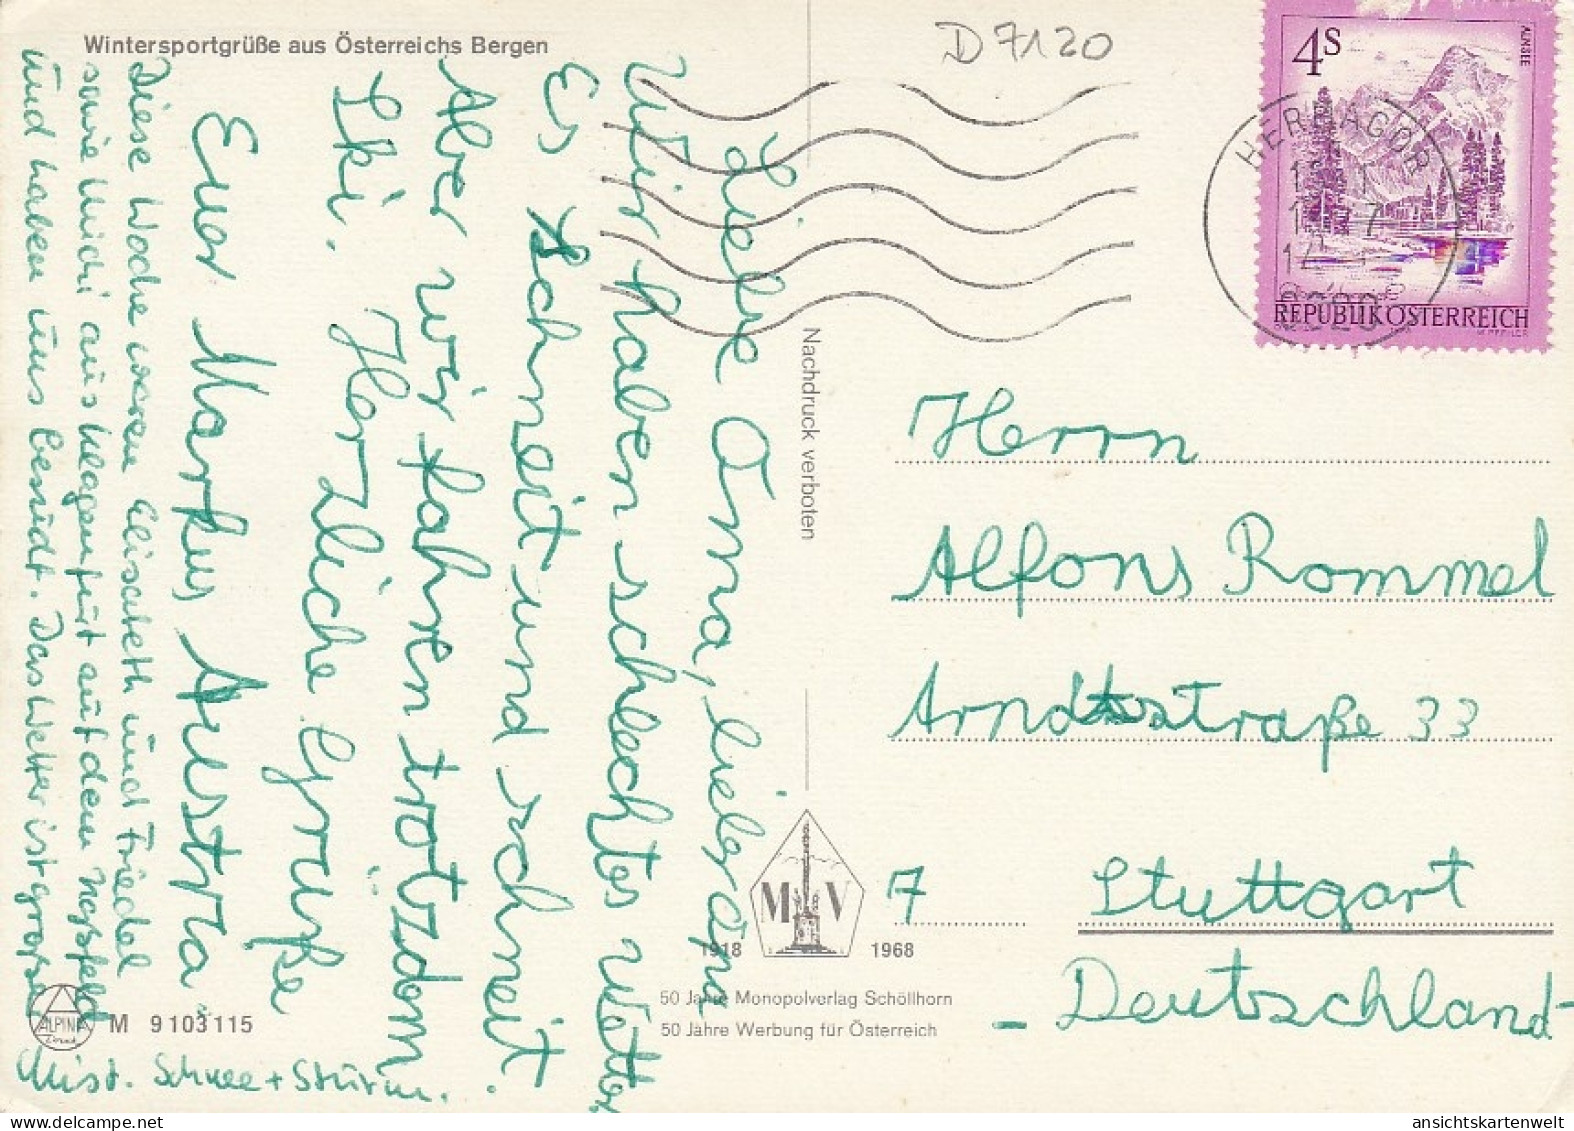 Wintersportgrüße aus Österreichs Bergen
D 7120
4S
ALMSEE
REPUBLIK ÖSTERREICH
HERMAGOR
Liebe Oma, lieber Opa
Wir haben schlechtes Wetter
Es schneit und schneit.
Aber wir fahren trotzdom
Ski. Herzliche Grüße
Euer Markus Austria.
Diese Woche waren Elisabeth und Friedel
sowie Michi aus Klagenfurt auf dem Naßfeld
und haben uns besucht. Das Wetter ist großer
Mist. Schnee + Sturm.
Nachdruck verboten
Herrn
Alfons Rommel
Arndtstraße 33
7 Stuttgart
- Deutschland -
M V
1918 1968
50 Jahre Monopolverlag Schöllhorn
50 Jahre Werbung für Österreich
ALPINA
Druck
M 9103115
ansichtskartenwelt@aol.com